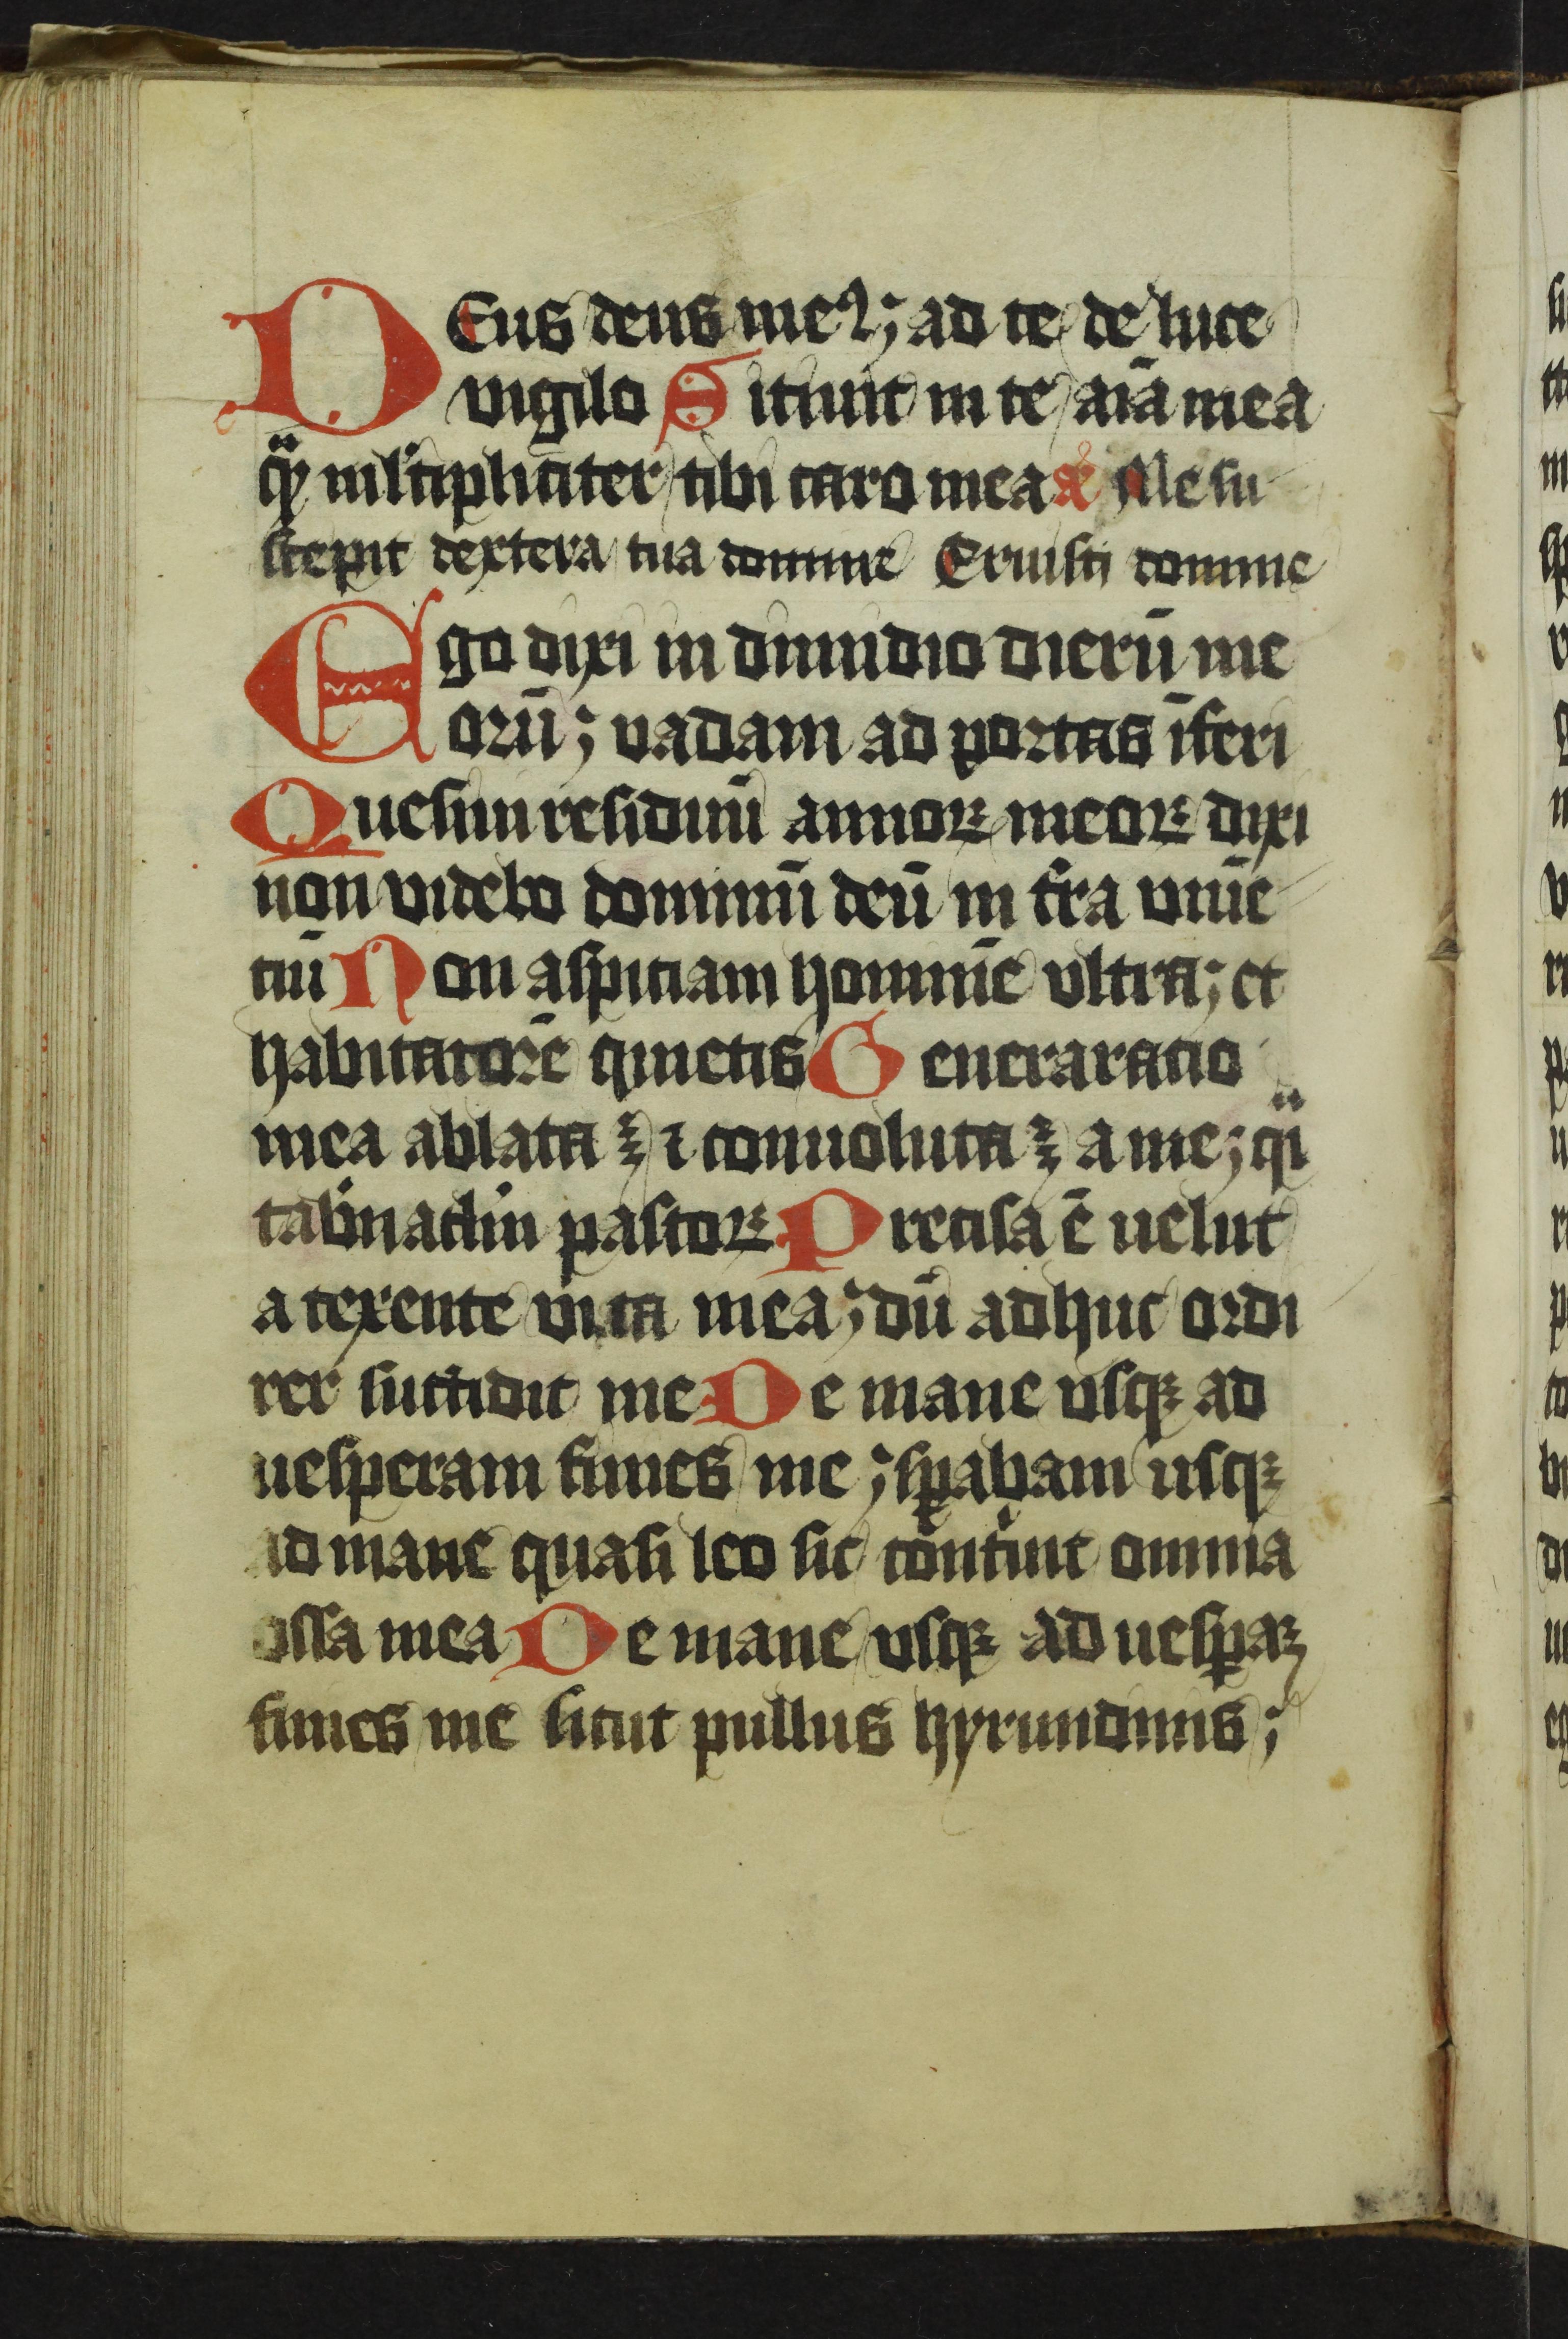 Deus deus meꝰ; ad te de luce
vigilo Sitiuit in te aīa mea
qͣꝫ ml̓tiplicit̓ter tibi caro mea Me su
scepit dextera tua domine Eruisti domine
Ego dixi in dimidio dierū me
orū; vadam ad portas īferi
Quesiui residuū annoꝝ meoꝝ dixi
non videbo dominū deū in t̓ra viuē
ciū Non aspiciam hominē vltra; et
habitatorē quietis Generaratio
mea ablata ꝫ ⁊ conuoluta ꝫ a me; qͣi
tab̓naclm̄ pastoꝝ Precisa ē uelut
a texente vita mea; dū adhuc ordi
rer succidit me De mane vsqꝫ ad
uesperam finies me; sꝑabam usqꝫ
ad mane quasi leo sic cont̓uit omnia
ossa mea De mane vsqꝫ ad uesꝑaꝫ
finies me sicut pullus hyrundinis;